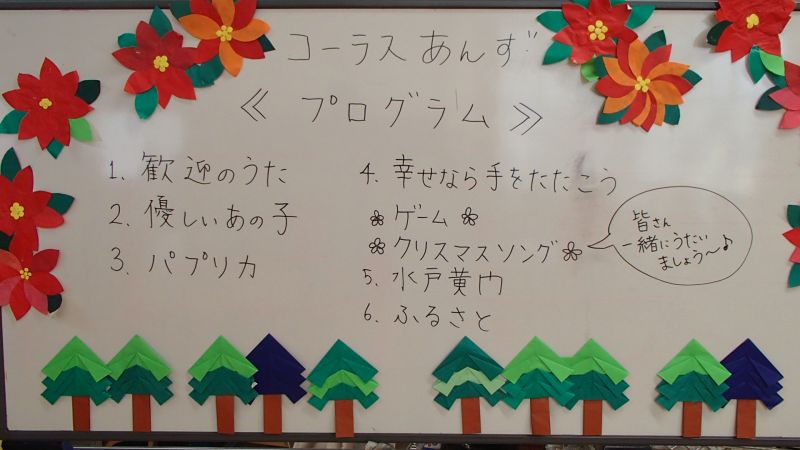 コーラスあんず
≪ プログラム ≫
1. 歓迎のうた
2. 優しいあの子
3. パプリカ
4. 幸せなら手をたたこう
ゲーム
クリスマスソング
皆さん
一緒にうたい
ましょう〜♪
5. 水戸黄門
6. ふるさと